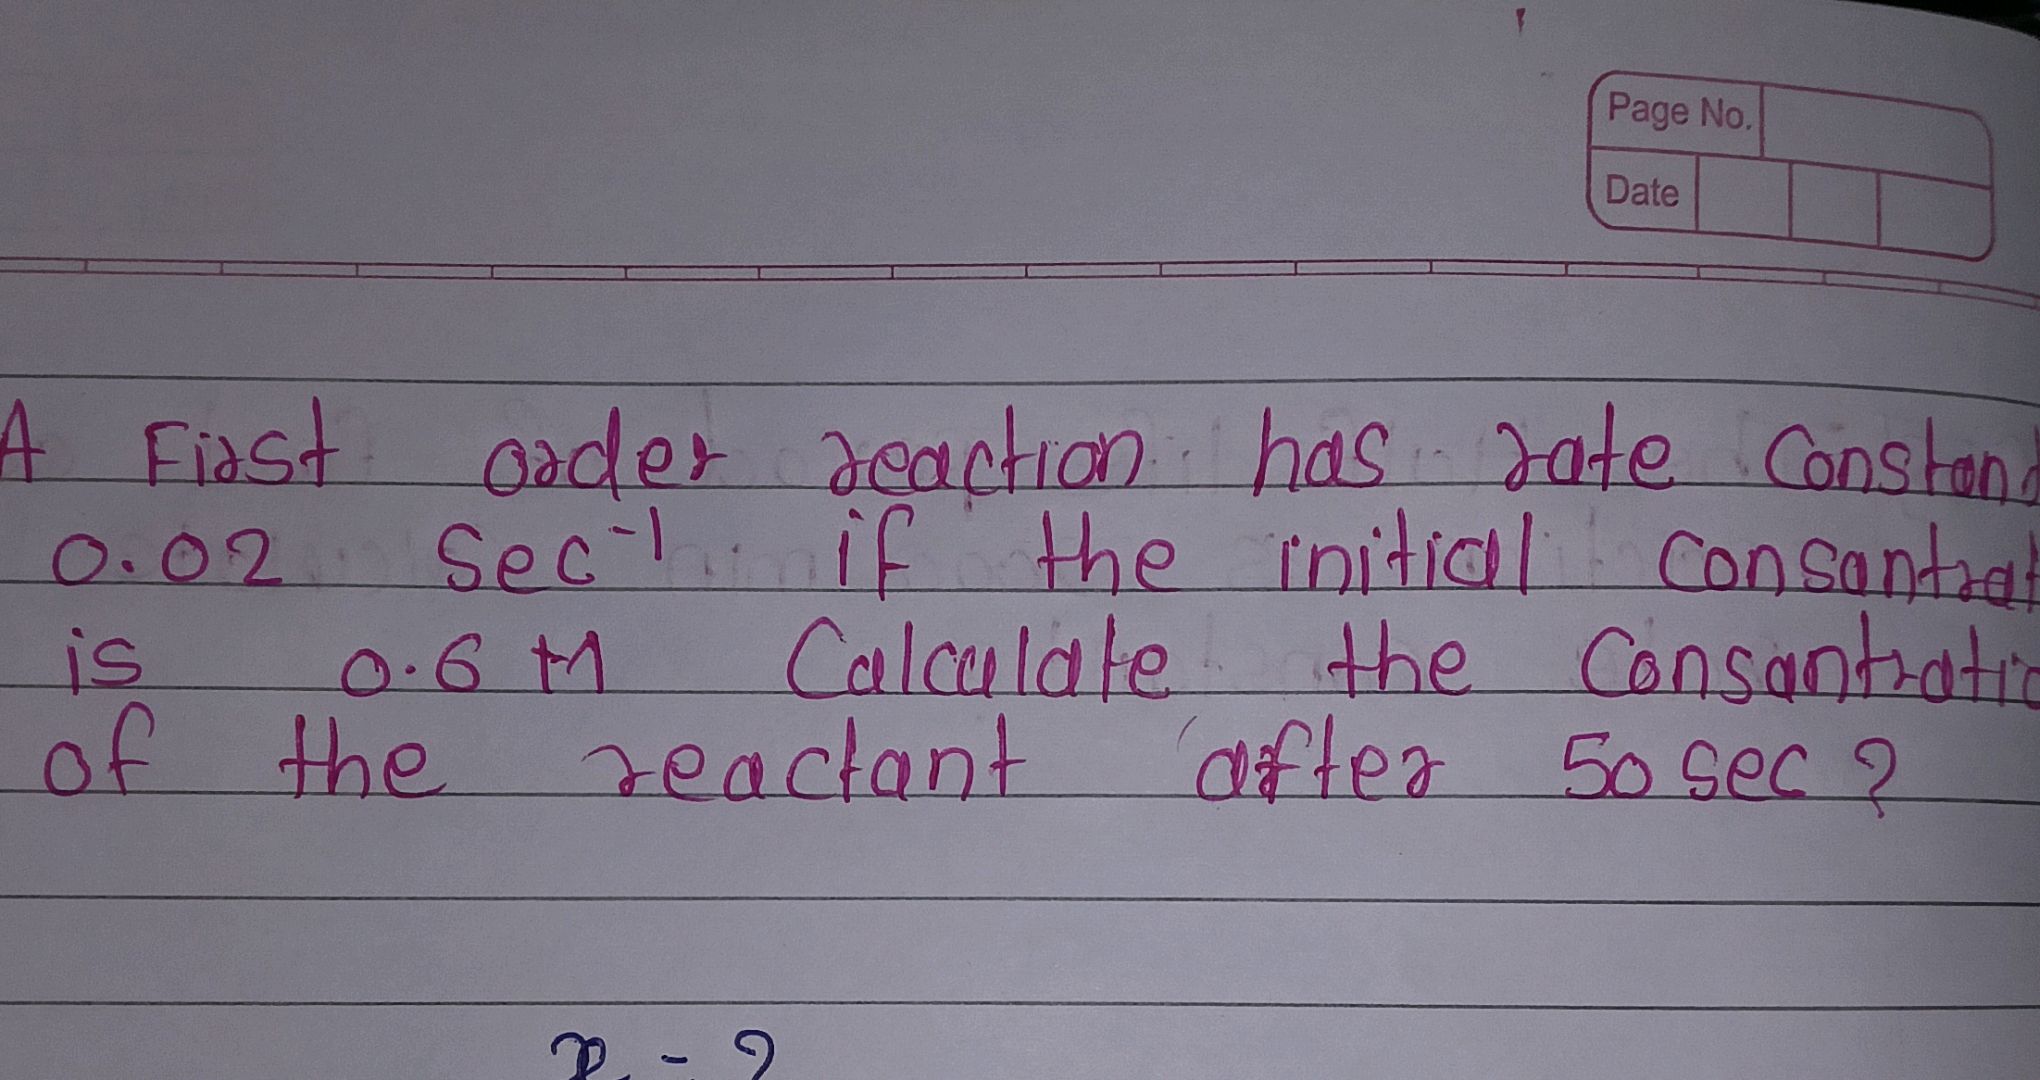 Page No.
Date
A First order reaction has rate Constan
0.02 Sec⁻¹ if the initial Consantrat
is 0.6 M Calculate the Consantratio
of the reactant after 50 sec ?
= ?